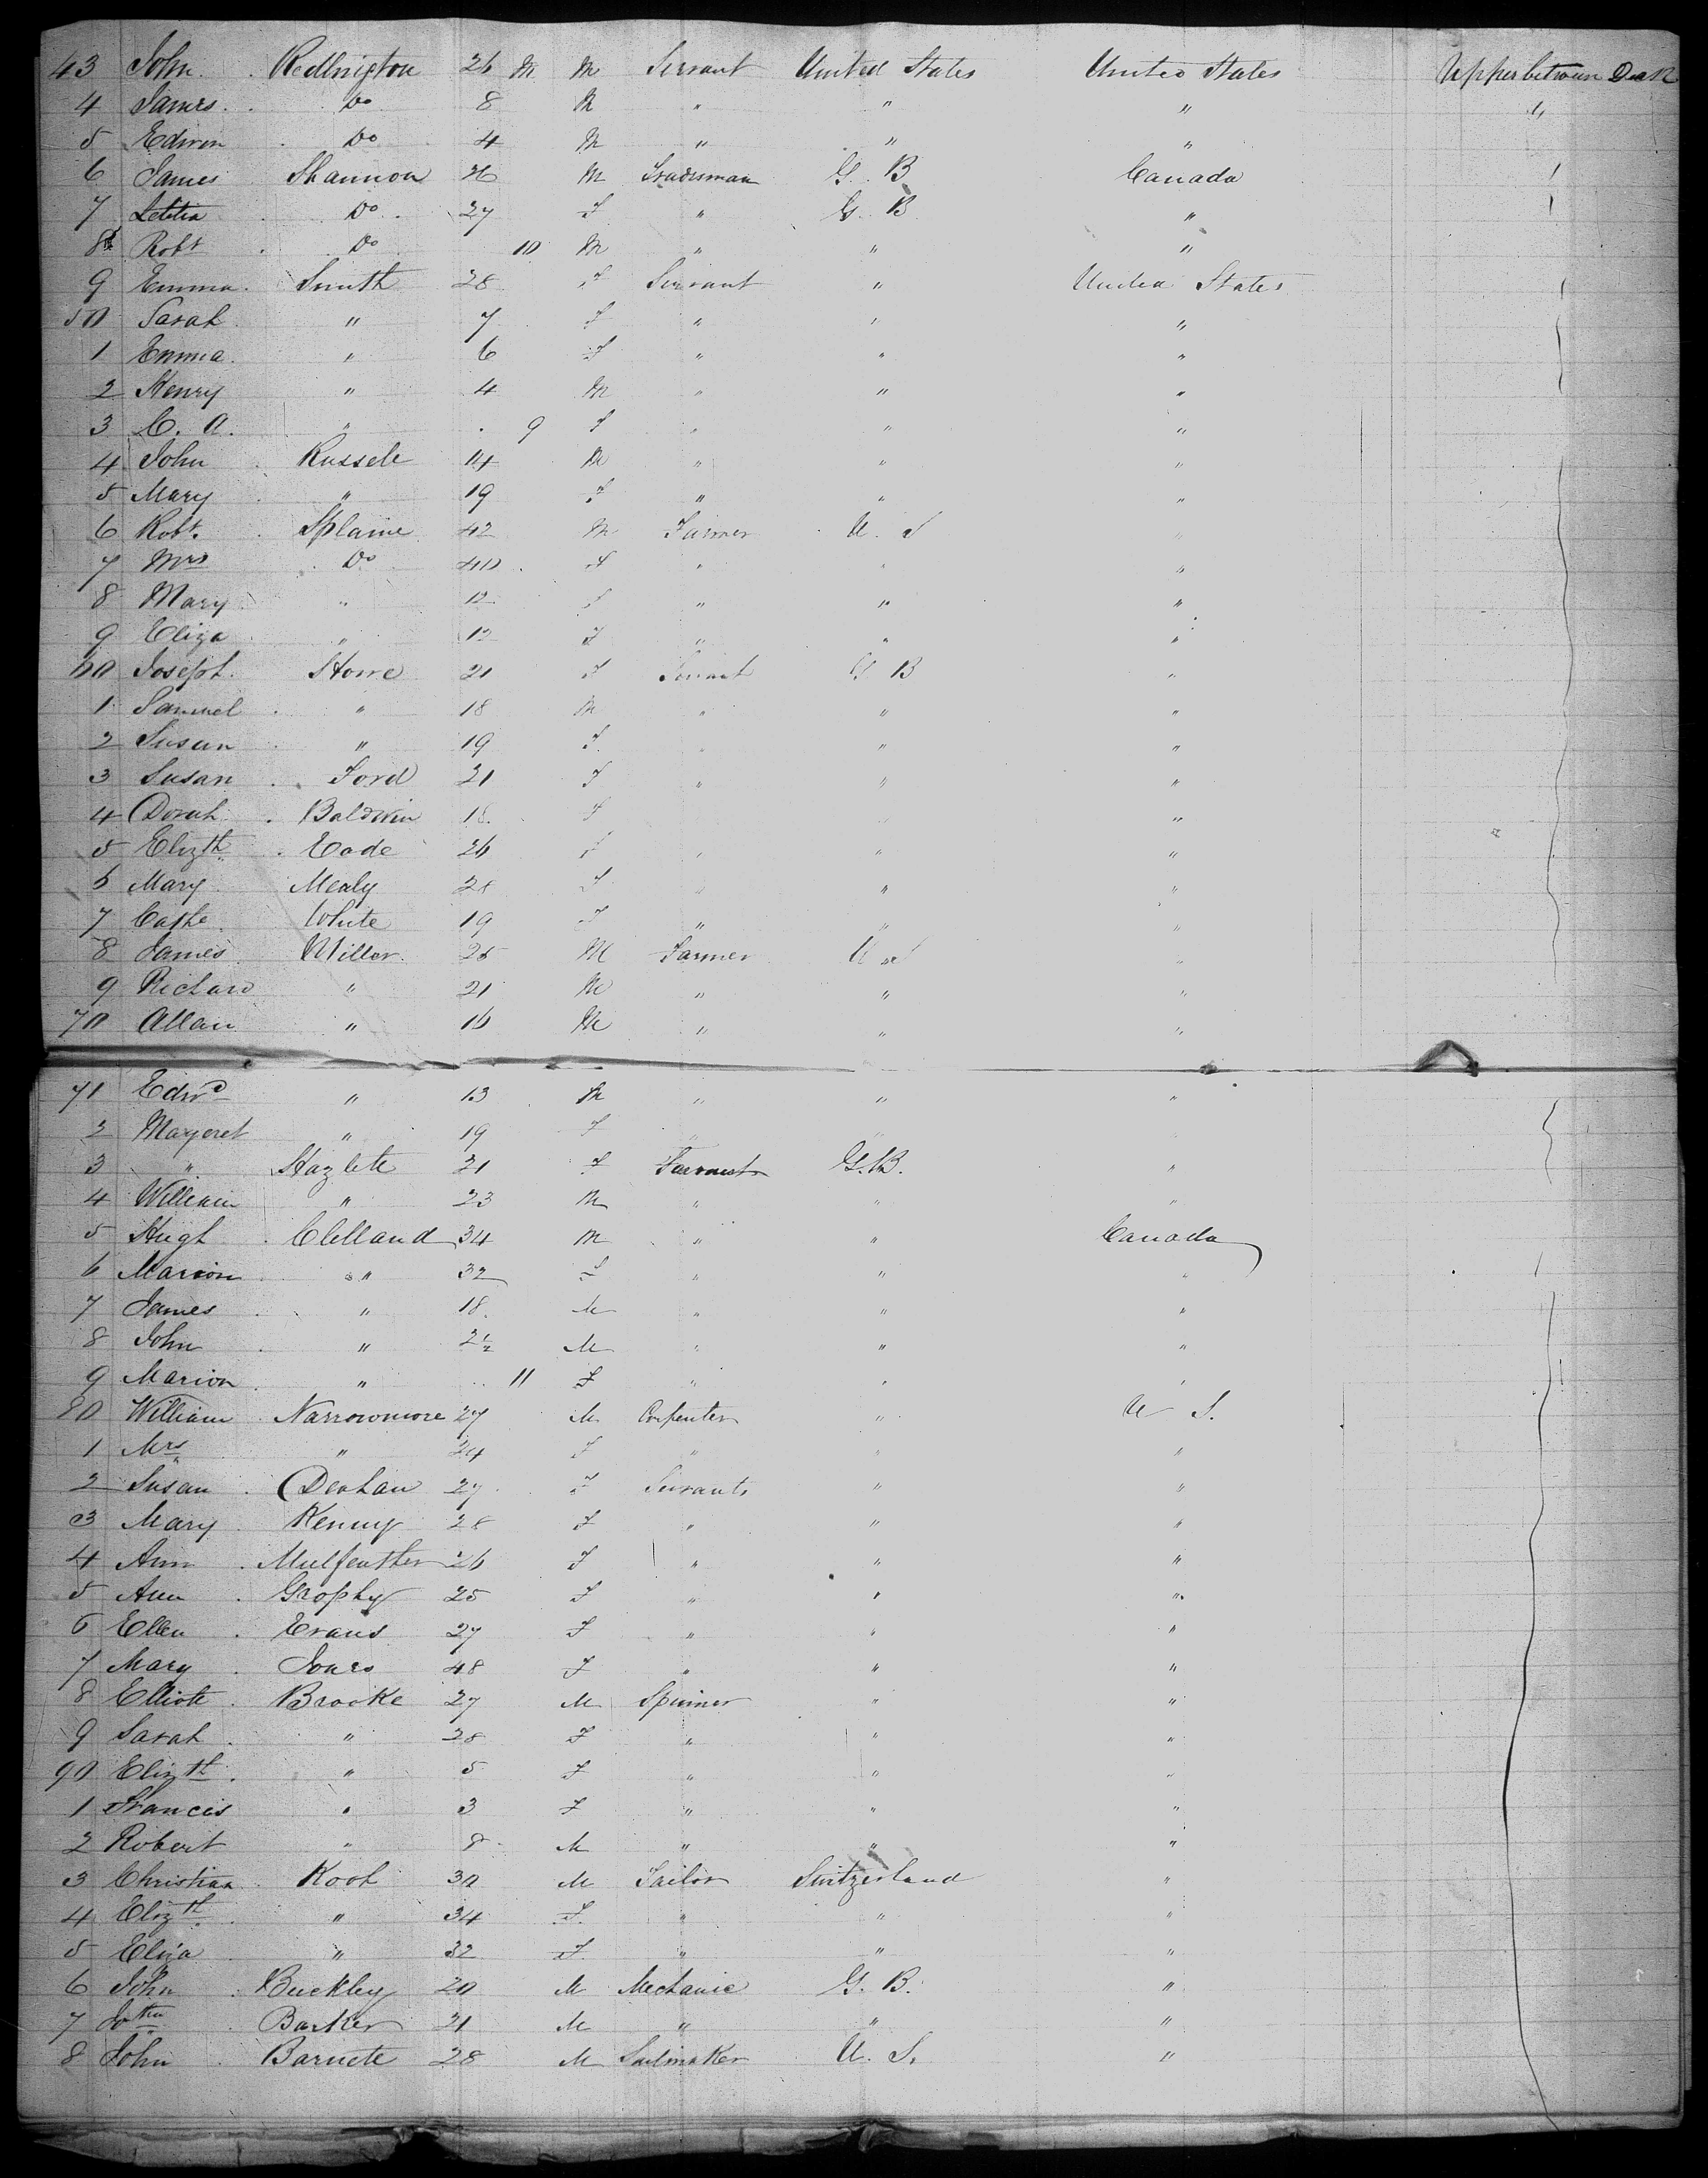 43 John Redington 26 M M Servant United States United States Upper between Deck
4 James Do 8 M " " " "
5 Edwin Do 4 M " " "
6 James Shannon 26 M Tradesman G. B Canada
7 Letitia Do 27 F " G. B "
8 Robt Do 10 M " " "
9 Emma Smith 28 F Servant " United States
50 Sarah " 7 F " " "
1 Emma " 6 F " " "
2 Henry " 4 M " " "
3 C. A. " 9 F " " "
4 John Russell 14 M " " "
5 Mary " 19 F " " "
6 Robt. Splaine 42 M Farmer U. S "
7 Mrs Do 40 F " " "
8 Mary " 12 F " " "
9 Eliza " 12 F " " "
60 Joseph Howe 21 F Servant G B "
1 Samuel " 18 M " " "
2 Susan " 19 F " " "
3 Susan Ford 21 F " " "
4 Dorah Baldwin 18 F "
5 Elizth Eade 26 F " " "
6 Mary Mealy 28 F " " "
7 Cathe White 19 F " "
8 James Miller 25 M Farmer U S "
9 Richard " 21 M " " "
70 Allan " 16 M " " "
71 Edwd " 13 M " " "
2 Margeret " 19 F " "
3 " Hazlett 21 F Servants G.B. "
4 William " 23 M " " "
5 Hugh Clelland 34 M " " Canada
6 Marion " 32 F " " "
7 James " 18 M " " "
8 John " 2½ M " " "
9 Marion " 11 F " " "
80 William Narrowmore 27 M Carpenter " U S.
1 Mrs " 24 F " " "
2 Susan Deahan 27 F Servants " "
3 Mary Kenny 28 F " " "
4 Ann Mulfeather 26 F " " "
5 Ann Grophy 25 F " " "
6 Ellen Evans 27 F " " "
7 Mary Jones 48 F " " "
8 Elliott Brooke 27 M Spinner " "
9 Sarah " 28 F " " "
90 Elizth " 5 F " " "
1 Francis " 3 F " " "
2 Robert " 8 M " " "
3 Christian Kooh 30 M Tailor Switzerland "
4 Elizth " 34 F " " "
5 Eliza " 32 F " " "
6 John Buckley 20 M Mechanic G. B. "
7 Barker 21 M " " "
8 John Barnett 28 M Sailmaker U. S. "